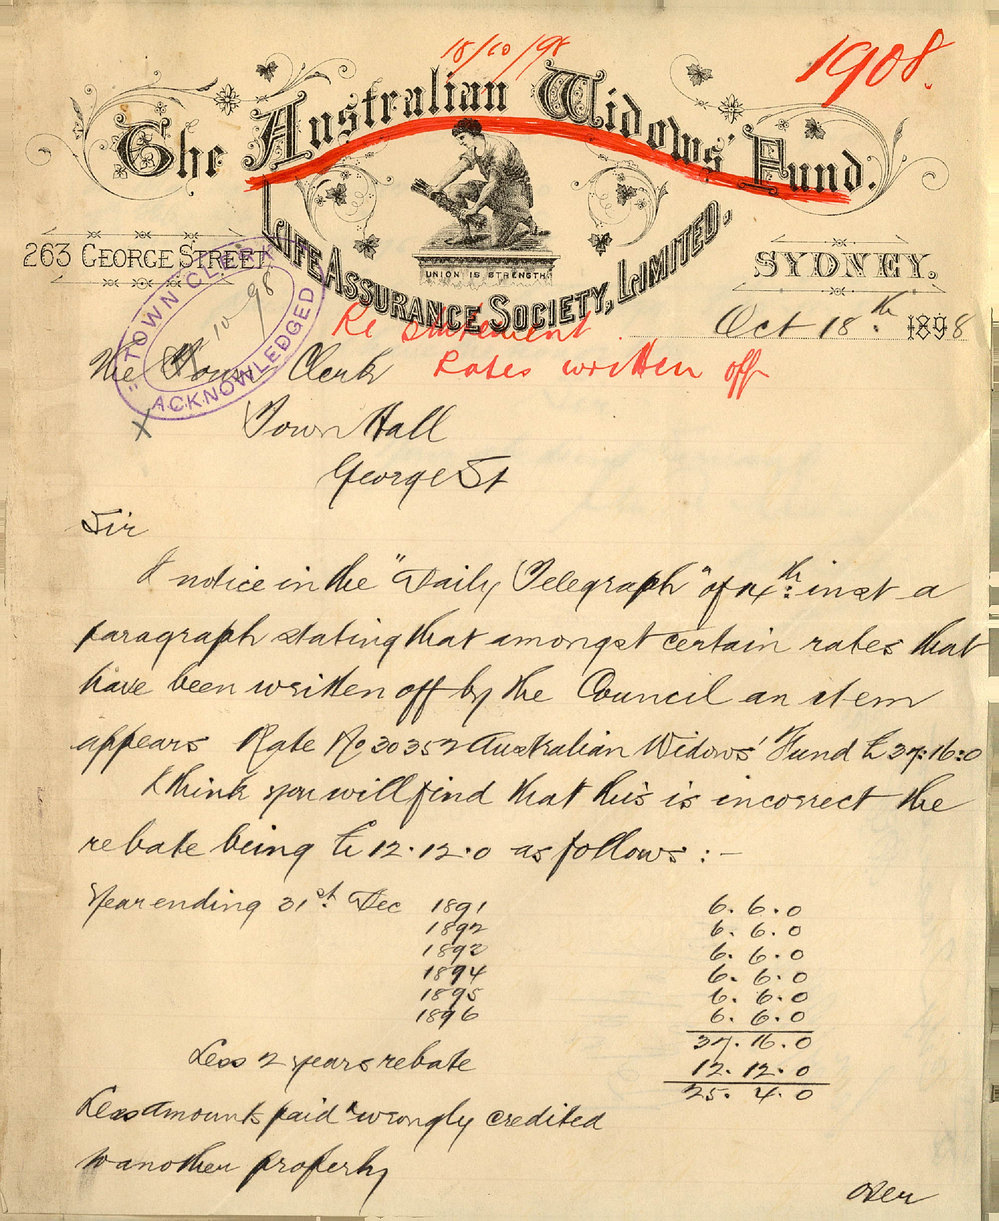 18/10/98
1908.
The Australian Widows' Fund.
Life Assurance Society, Limited.
UNION IS STRENGTH
263 George Street
Sydney.
"TOWN CLERK
10 98
ACKNOWLEDGED
Re Statement
Rates written off
Oct 18.th 1898
The Town Clerk
X
Town Hall
George St
Sir
I notice in the "Daily Telegraph" of 14th: inst a
paragraph stating that amongst certain rates that
have been written off by the Council an item
appears Rate No 30352 Australian Widows' Fund £37:16:0
I think you will find that this is incorrect the
rebate being £12.12.0 as follows :-
Year ending 31st. Dec 1891 6. 6. 0
1892 6. 6. 0
1893 6. 6. 0
1894 6. 6. 0
1895 6. 6. 0
1896 6. 6. 0
37. 16. 0
Less 2 years rebate 12. 12. 0
25. 4. 0
Less amounts paid & wrongly credited
to another property
over